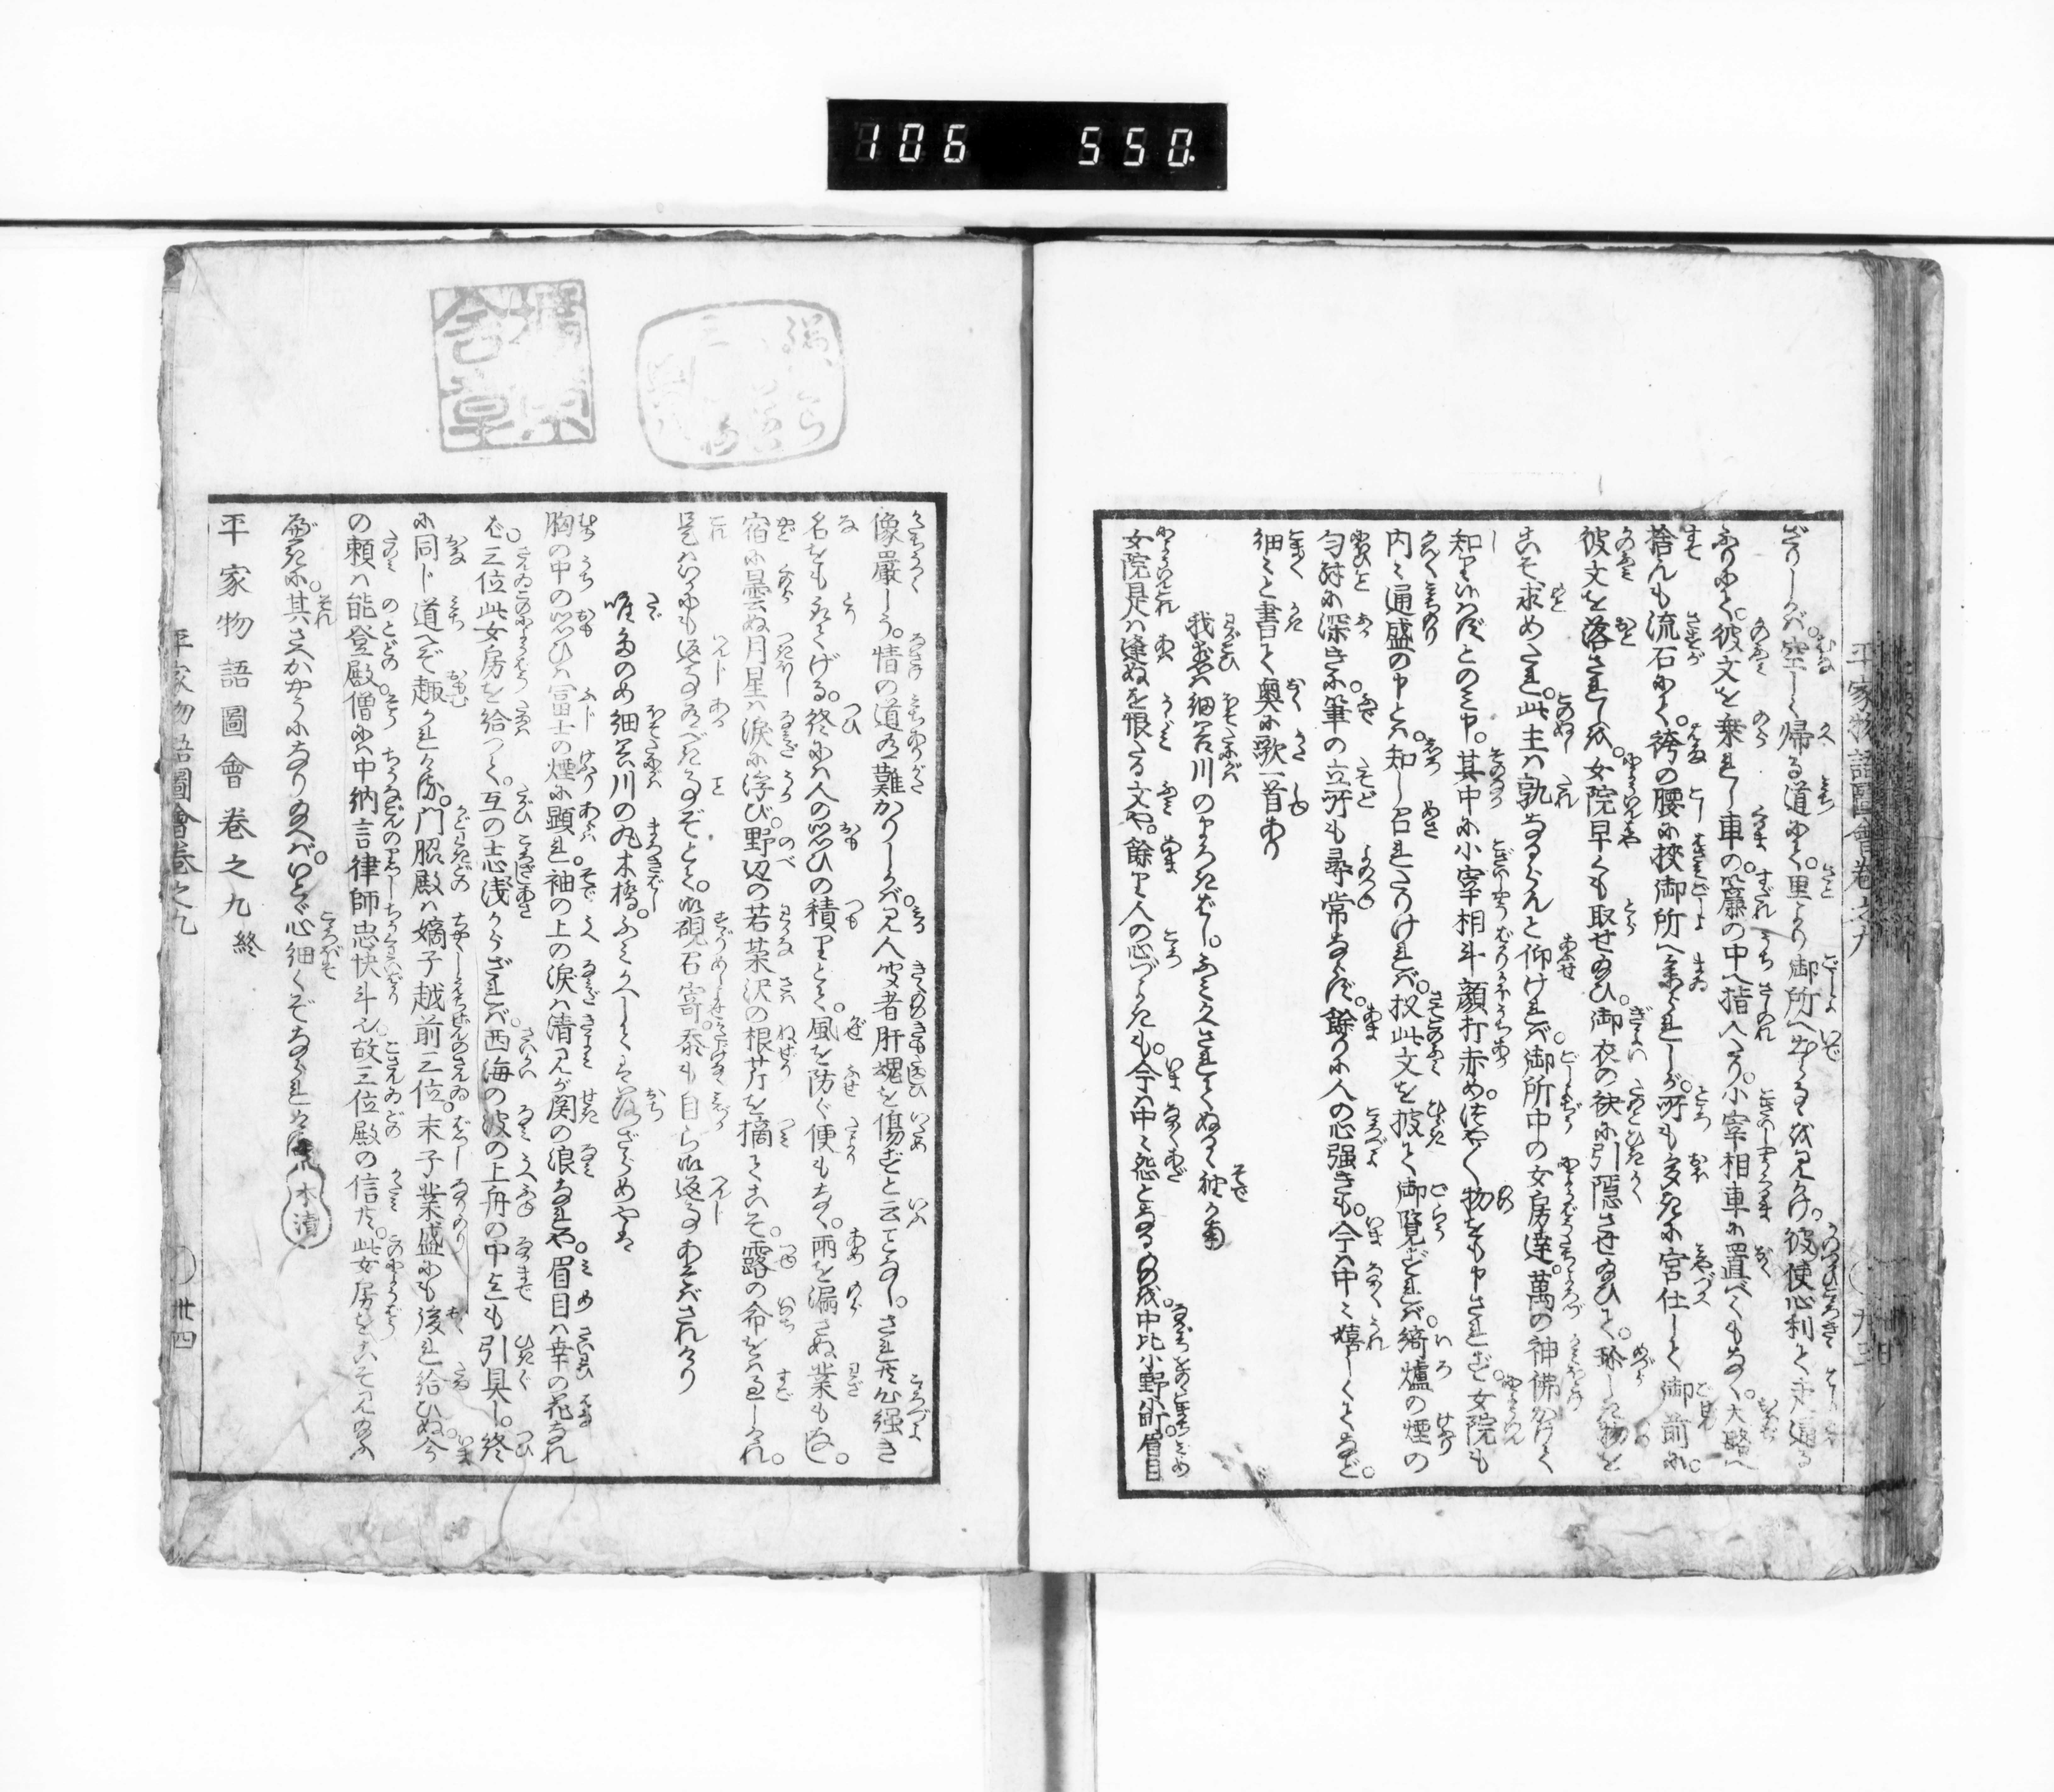 106 550
平家物語圖會卷之九
ざりしかば。空しく帰る道にて。里より御所へ出らるゝを見かけ。彼使心利て走通る
ふりにて。彼文を乗れし車の。簾の中へ指入たり。小宰相車に置べくもなく。大路へ
捨んも流石にて。袴の腰に挟御所へ参られしが。所も多きに宮仕しとて御前に。
彼文を落されしを。女院早くも取せ給ひ。御衣の袂に引隠させ給ひて。珍しき物を
こそ求めたれ。此主は孰なるらんと仰ければ。御所中の女房達。萬の神佛かけて
知らずとのみ申。其中に小宰相斗顔打赤め。つやつや物をも申されず。女院も
内々通盛の申とは。知し召れたりければ。扨此文を披て御覧ずれば。綺爐の煙の
匂殊に深きに。筆の立所も尋常ならず。餘りに人の心强きも。今は中々嬉しくてなど。
細々と書て奥に歌一首あり
我恋は細谷川のまろきばし。ふみかへされてぬるゝ袖かな
女院是は逢ぬを恨たる文や。餘り人の心づよきも。今は中々怨となる物を。中比小野小町。眉目
像嚴しう。情の道有難かりしかば。見人聞者肝魂を傷ずと云ことなし。されども心强き
名をも取たりけん。終には人の思ひの積りとて。風を防ぐ便もなく。雨を漏さぬ業もなし。
宿に曇ぬ月星は涙に浮び。野辺の若菜沢の根芹を摘てこそ。露の命をば過しけれ。
是はいかにも返事有べき事ぞとて。御硯石寄。忝も自ら御返事あそばされけり
唯たのめ細谷川の丸木橋。ふみかへしては落ざらめやは
胸の中の思ひは富士の煙に顕れ。袖の上の涙は清見が関の浪なれや。眉目は幸の花なれ
ば。三位此女房を給つて。互の志浅からざれば。西海の波の上舟の中迄も引具し。終
に同じ道へぞ趣かれける。門脇殿は嫡子越前三位。末子業盛にも後れ給ひぬ。今
の頼は能登殿。僧には中納言律師忠快斗也。故三位殿の信共。此女房をこそ見給ふ
べきに。其さへかやうになり給へば。いとゞ心細くぞなられける
平家物語圖會卷之九終
平家物語圖會卷之九
卅四